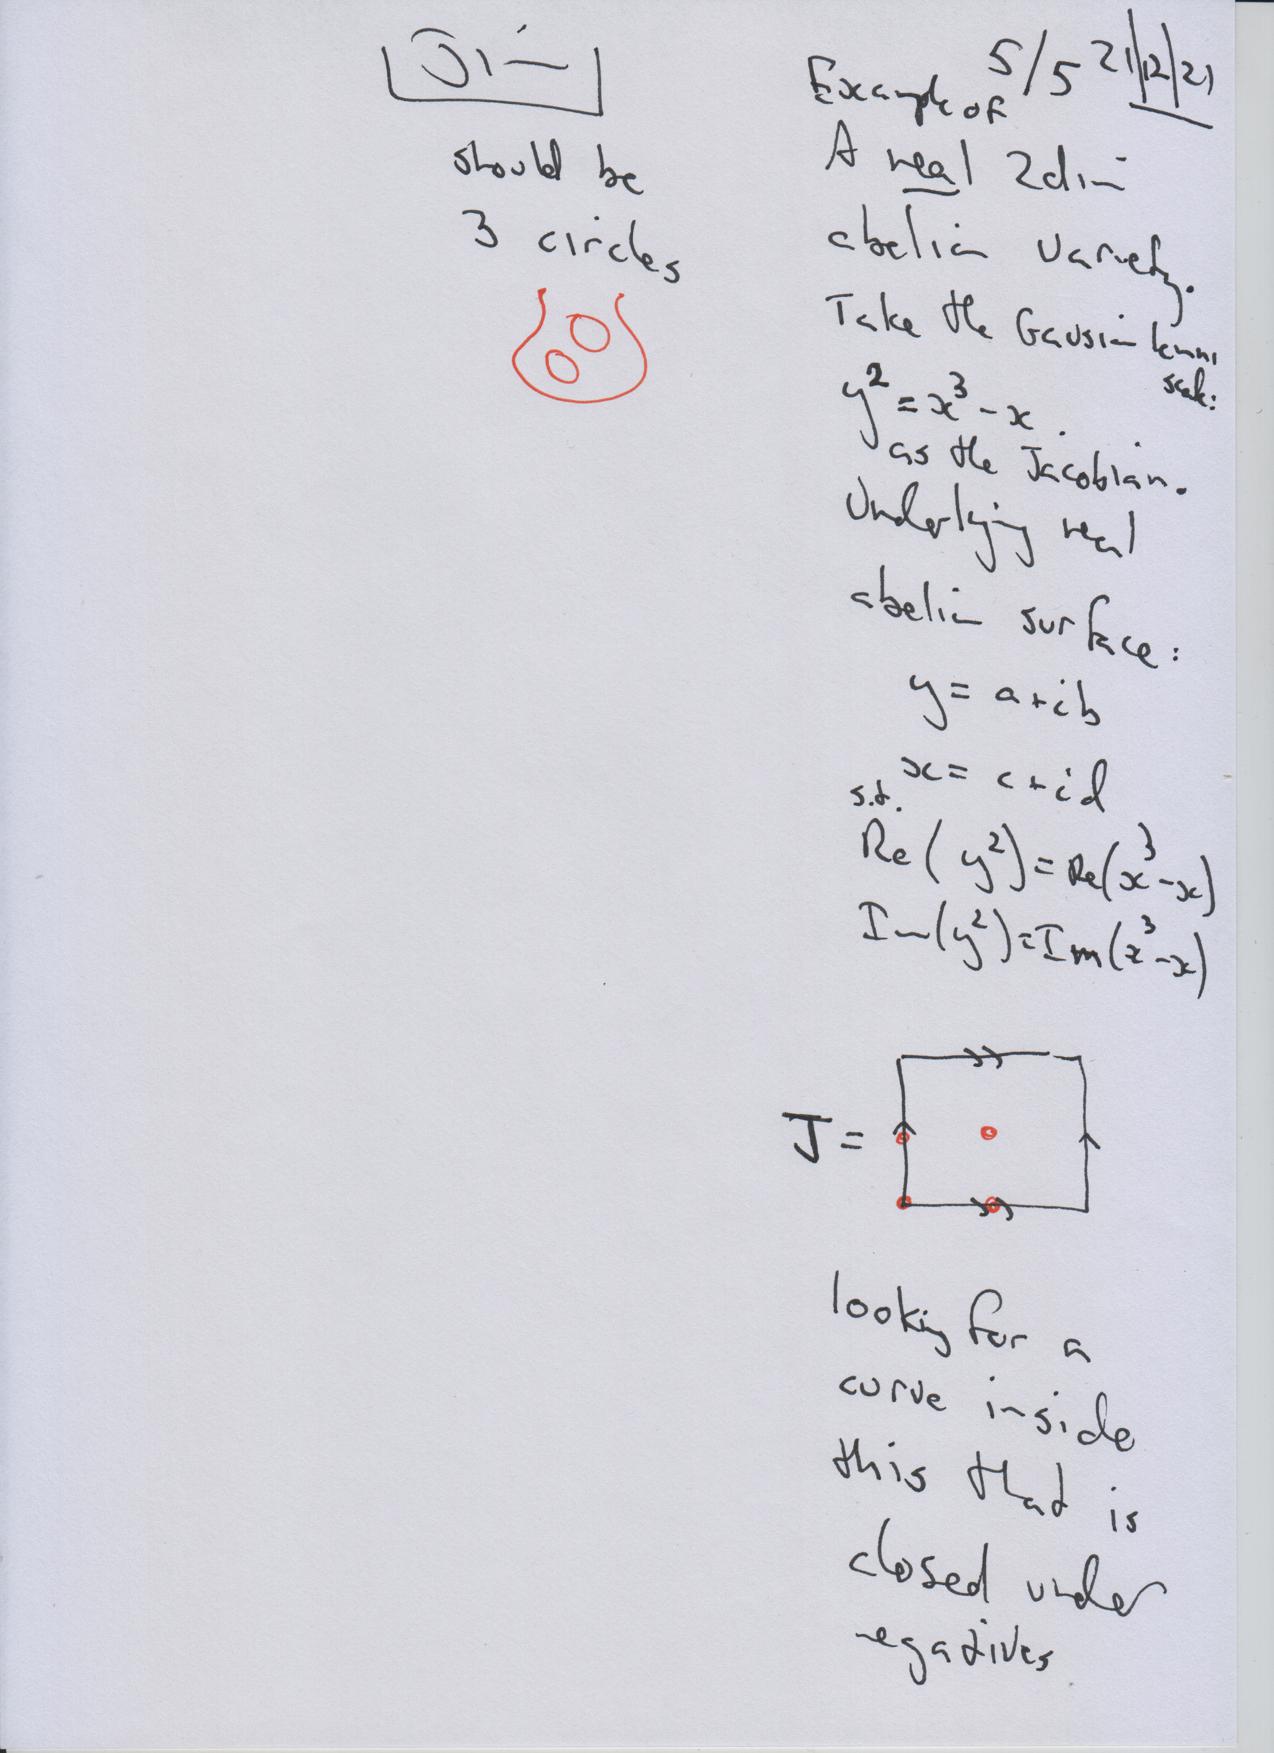 should be
3 circles
5/5 21/12/21
Example of
A real 2dim
abelian variety.
Take the Gaussian lemni
scate:
y² = x³ - x.
as the Jacobian.
Underlying real
abelian surface:
y = a + ib
x = c + id
s.t.
Re(y²) = Re(x³-x)
Im(y²) = Im(x³-x)
J =
looking for a
curve inside
this that is
closed under
negatives